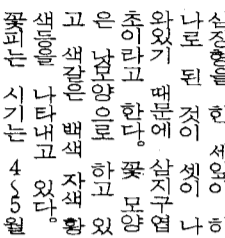 한 하
나로 된 것이 셋이 나
와있기 때문에 삼지구엽
초이라고 한다. 꽃 모양
은 하고 있
고 색갈은 백색 자색 황
색등을 나타내고 있다.
꽃피는 시기는 4~5월